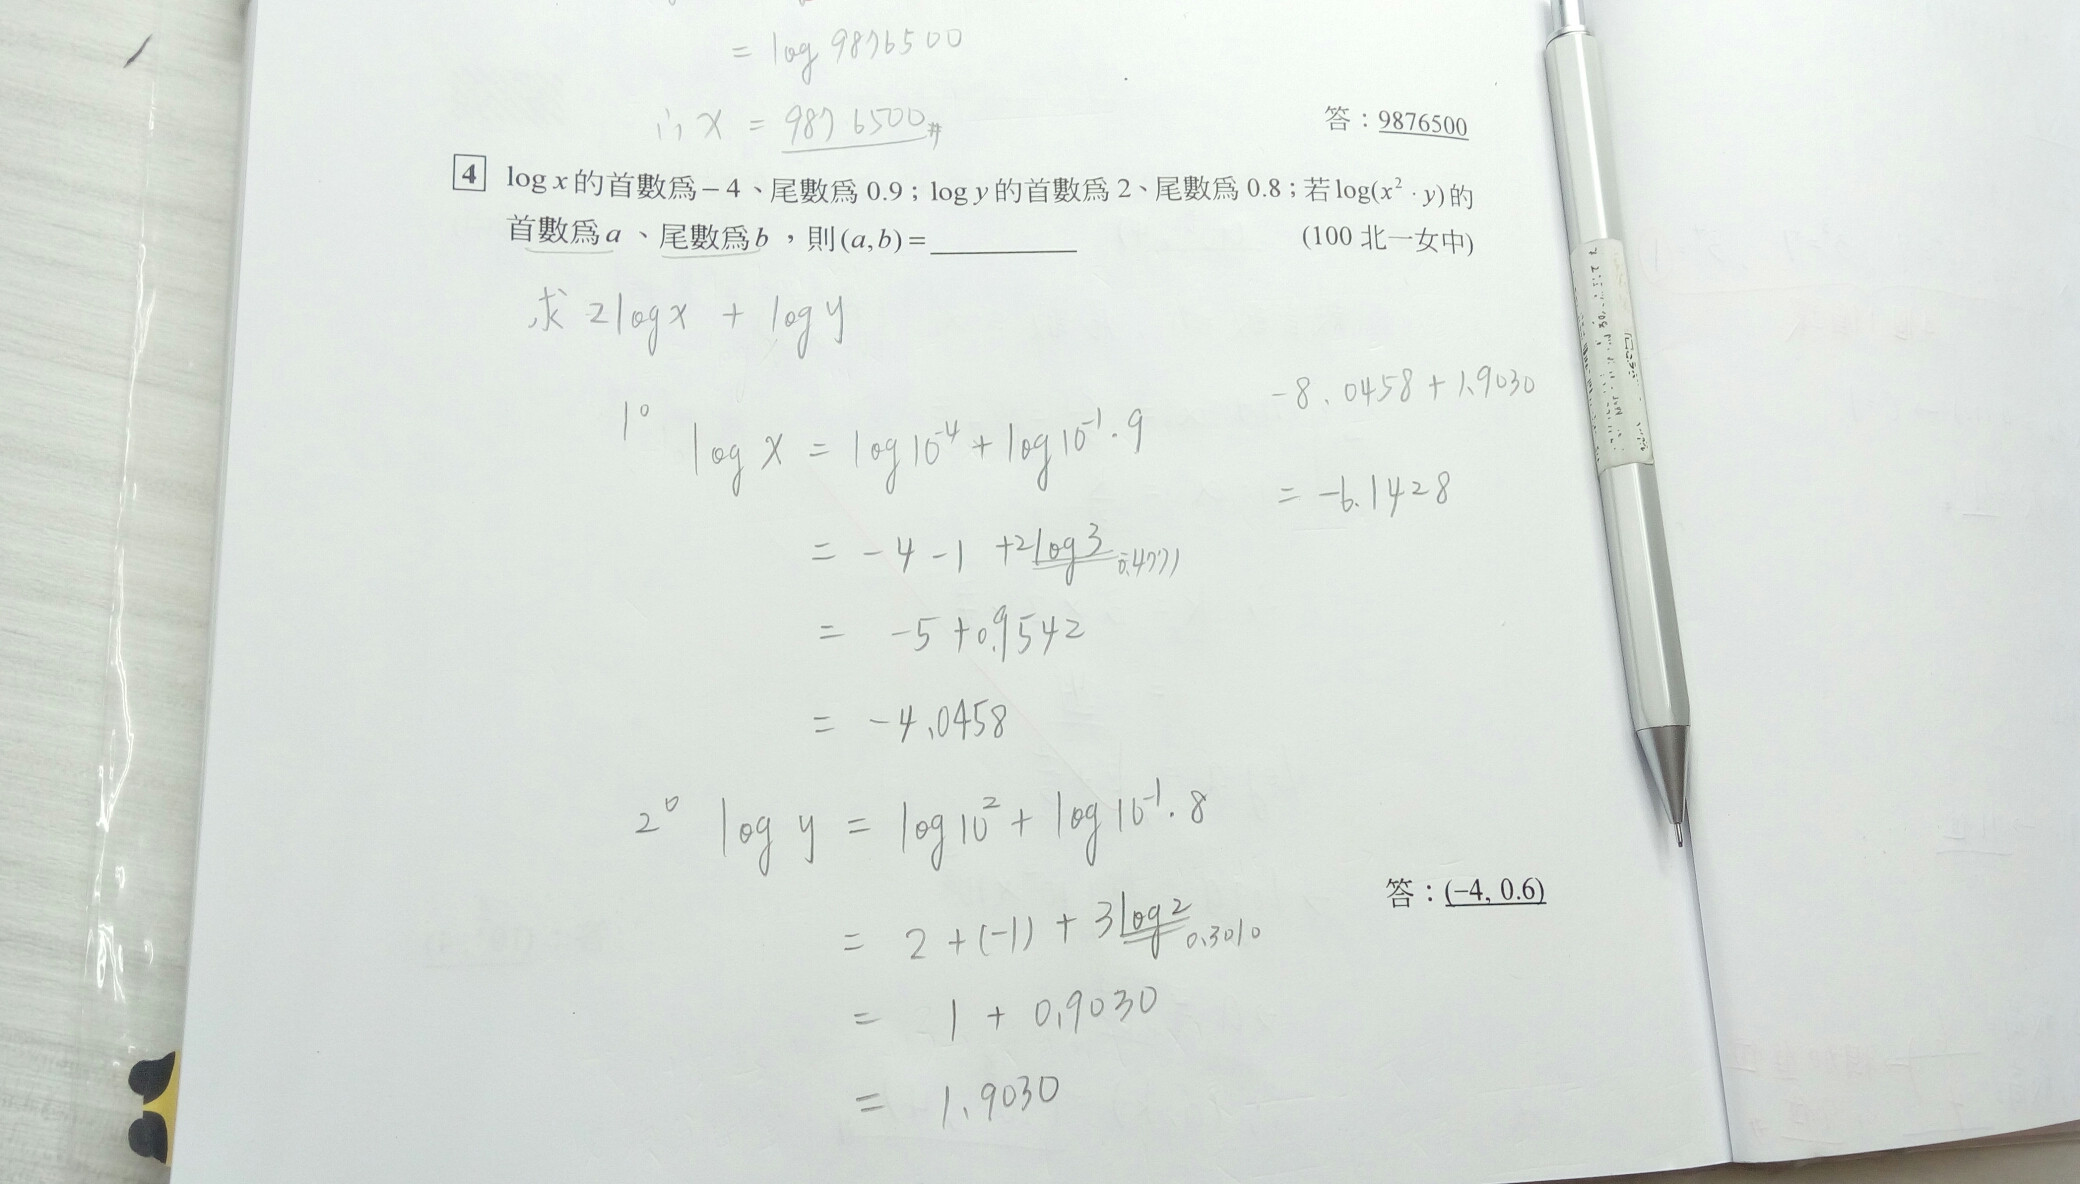 = log 9876500
∴ x = 9876500 #
答：9876500
4 log x 的首數爲 – 4、尾數爲 0.9；log y 的首數爲 2、尾數爲 0.8；若 log(x² · y) 的
首數爲 a 、尾數爲 b ，則 (a, b) = ________ (100 北一女中)
求 2logx + logy
1° log x = log10⁻⁴ + log10⁻¹·9
= -4 -1 +2log3 0.4771
= -5 +0.9542
= -4.0458
-8.0458 + 1.9030
= -6.1428
2° log y = log10² + log10⁻¹·8
= 2 + (-1) + 3log2 0.3010
= 1 + 0.9030
= 1.9030
答：(–4, 0.6)